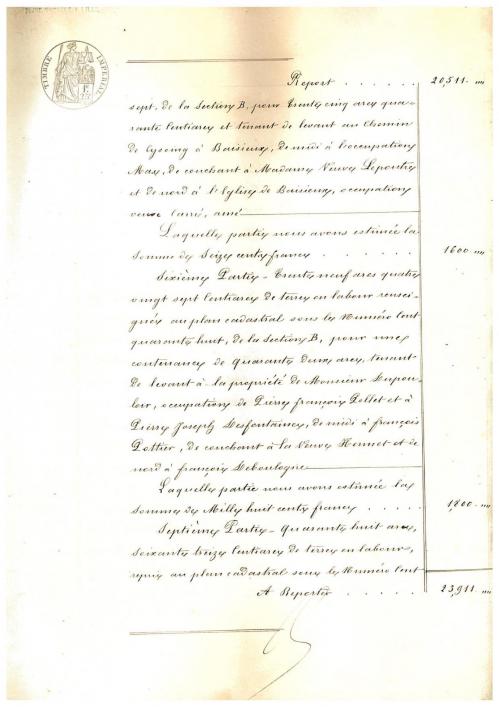 TIMBRE IMPERIAL
Report . . . . . . 20,511. "
sept, de la Section B, pour trente cinq ares qua-
rante centiares et tenant de levant au Chemin
de Cysoing à Baisieux, de midi à l'occupation
Max, de couchant à Madame Veuve Lepoutre
et de nord à l'Eglise de Baisieux, occupation
veuve Carré, aimé
Laquelle partie nous avons estimée la
somme de Seize cents francs . . . . . . 1600. "
Sixième Partie - Trente neuf ares quatre
vingt sept Centiares de terre en labour rensei-
gnée au plan cadastral sous le Numéro Cent
quarante huit, de la Section B, pour une
contenance de quarante deux ares, tenant
de levant à la propriété de Monsieur Dupou-
loir, occupation de Pierre François Dellet et à
Pierre Joseph Desfontaines, de midi à François
Pottier, de couchant à la Veuve Honnet et de
nord à François Deboulogne
Laquelle partie nous avons estimée la
somme de Mille huit cents francs . . . . 1800. "
Septième Partie - Quarante huit ares,
soixante treize Centiares de terre en labour,
repris au plan cadastral sous le Numéro Cent
A Reporter . . . . . 23,911. "